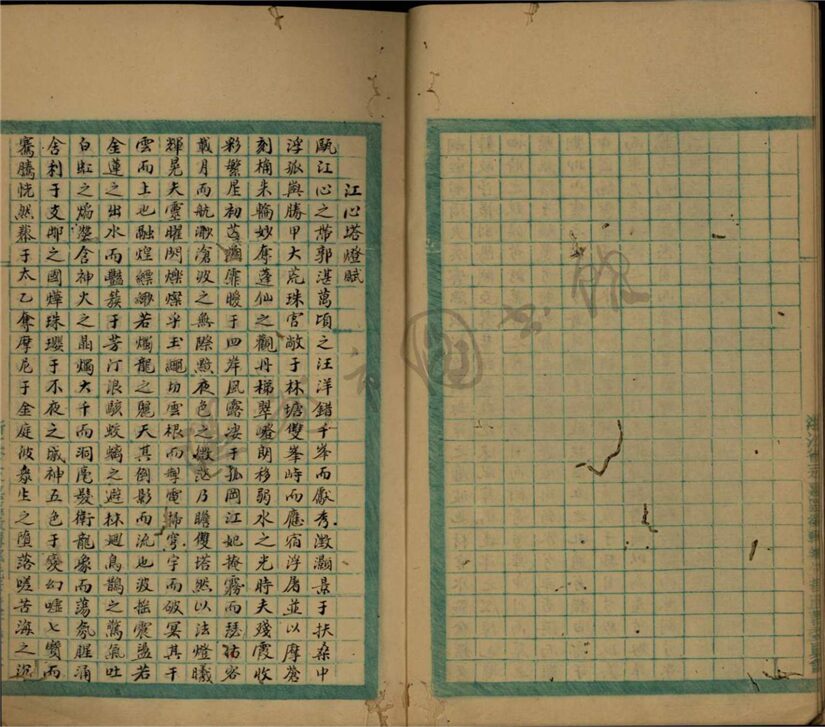 江心塔燈賦
甌江心之帶郭湛萬頃之汪洋錯千峯而獻秀澂灝景于扶桑中
浮孤嶼勝甲大荒珠宮敞于林塘雙峯峙而應宿浮屠並以摩蒼
刻桷朱輪妙奪蓬仙之觀丹梯翠朗移弱水之光時夫殘霞收
彩繁星初扉暖于四岸風露凄于孤岡江妃掩霧而瑟客
載月而航渺滄波之無際黯夜色之微茫乃瞻雙塔然以法燈曦
輝晃夫靈曜閃爍燦乎玉繩切雲根而掣電掃穹宇而破冥其干
雲而上也融煌縹緲若燭龍之麗天其倒影而流也波搖震盪若
金蓮之出水而豔蔟于芳汀浪駭蛟螭之避林迴鳥鵲之驚氣吐
白虹之焰含神火之晶燭大千而洞毫髮衛龍象而蕩氛腥涌
舍利于支那之國燁珠瓔于不夜之城神五色于變幻噓七寶而
騫騰恍然藜于太乙奪摩尼于金庭彼衆生之墮落嗟苦海之沉